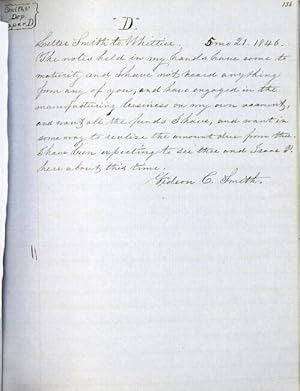 136
Smith's
Dep.
"D"
Letter Smith to Whittier, 5 mo 21. 1846.
The notes held in my hands have come to
maturity and I have not heard anything
from any of you, and have engaged in the
manufacturing business on my own account,
and want all the funds I have, and want in
some way to realize the amount due from thee
I have been expecting to see thee and Isaac P.
here about this time.
Gideon C. Smith.